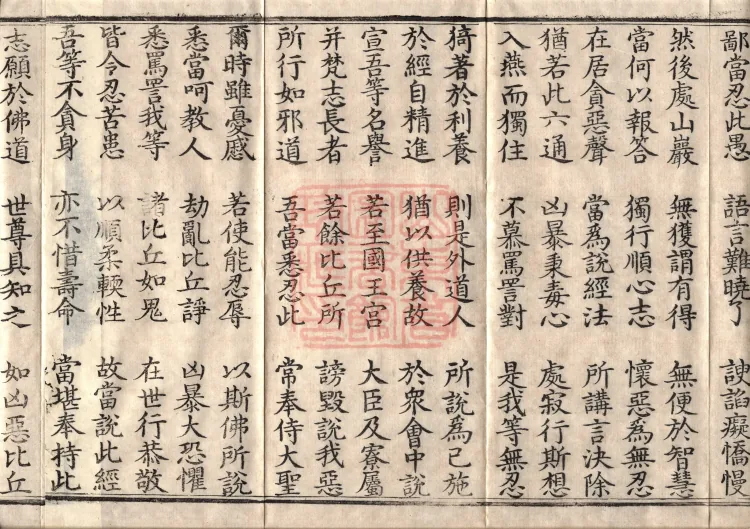 鄙當忍此愚 語言難曉了 諛諂癡憍慢
然後處山巖 無獲謂有得 無便於智慧
當何以報答 獨行順心志 懷惡為無忍
在居貪惡聲 當為說經法 所講言決除
猶若此六通 凶暴秉毒心 處寂行斯想
入燕而獨住 不慕罵詈對 是我等無忍
猗著於利養 則是外道人 所說為已施
於經自精進 猶以供養故 於眾會中說
宣吾等名譽 若至國王宮 大臣及寮屬
并梵志長者 若餘比丘所 謗毀說我惡
所行如邪道 吾當悉忍此 常奉侍大聖
爾時雖憂慼 若使能忍辱 以斯佛所說
悉當呵教人 劫亂比丘諍 凶暴大恐懼
悉罵詈我等 諸比丘如鬼 在世行恭敬
皆今忍苦患 以順柔輭性 故當說此經
吾等不貪身 亦不惜壽命 當堪奉持此
志願於佛道 世尊具知之 如凶惡比丘